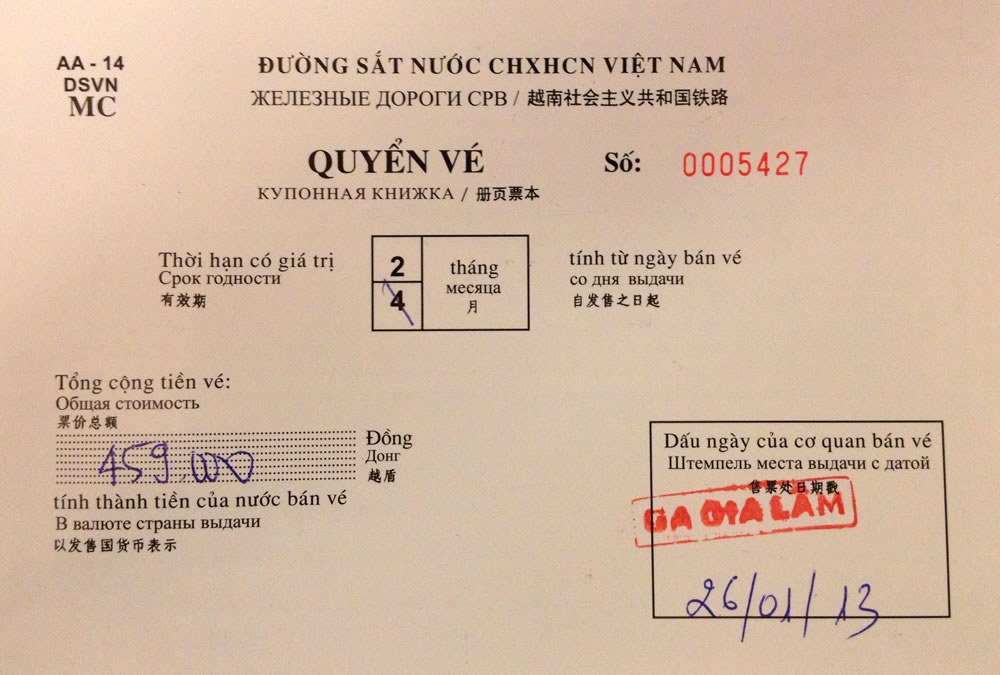 AA - 14
DSVN
MC
ĐƯỜNG SẮT NƯỚC CHXHCN VIỆT NAM
ЖЕЛЕЗНЫЕ ДОРОГИ СРВ / 越南社会主义共和国铁路
QUYỂN VÉ
Số: 0005427
КУПОННАЯ КНИЖКА / 册页票本
Thời hạn có giá trị
Срок годности
有效期
2
4
tháng
месяца
月
tính từ ngày bán vé
со дня выдачи
自发售之日起
Tổng cộng tiền vé:
Общая стоимость
票价总额
459.000
Đồng
Донг
越盾
tính thành tiền của nước bán vé
В валюте страны выдачи
以发售国货币表示
Dấu ngày của cơ quan bán vé
Штемпель места выдачи с датой
售票处日期戳
GA GIA LAM
26/01/13